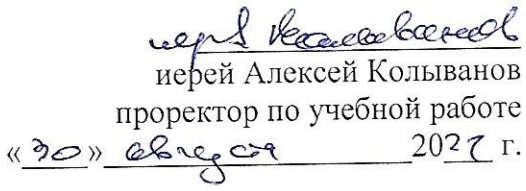 иерей Колыванов
иерей Алексей Колыванов
проректор по учебной работе
«30» августа 20 г.